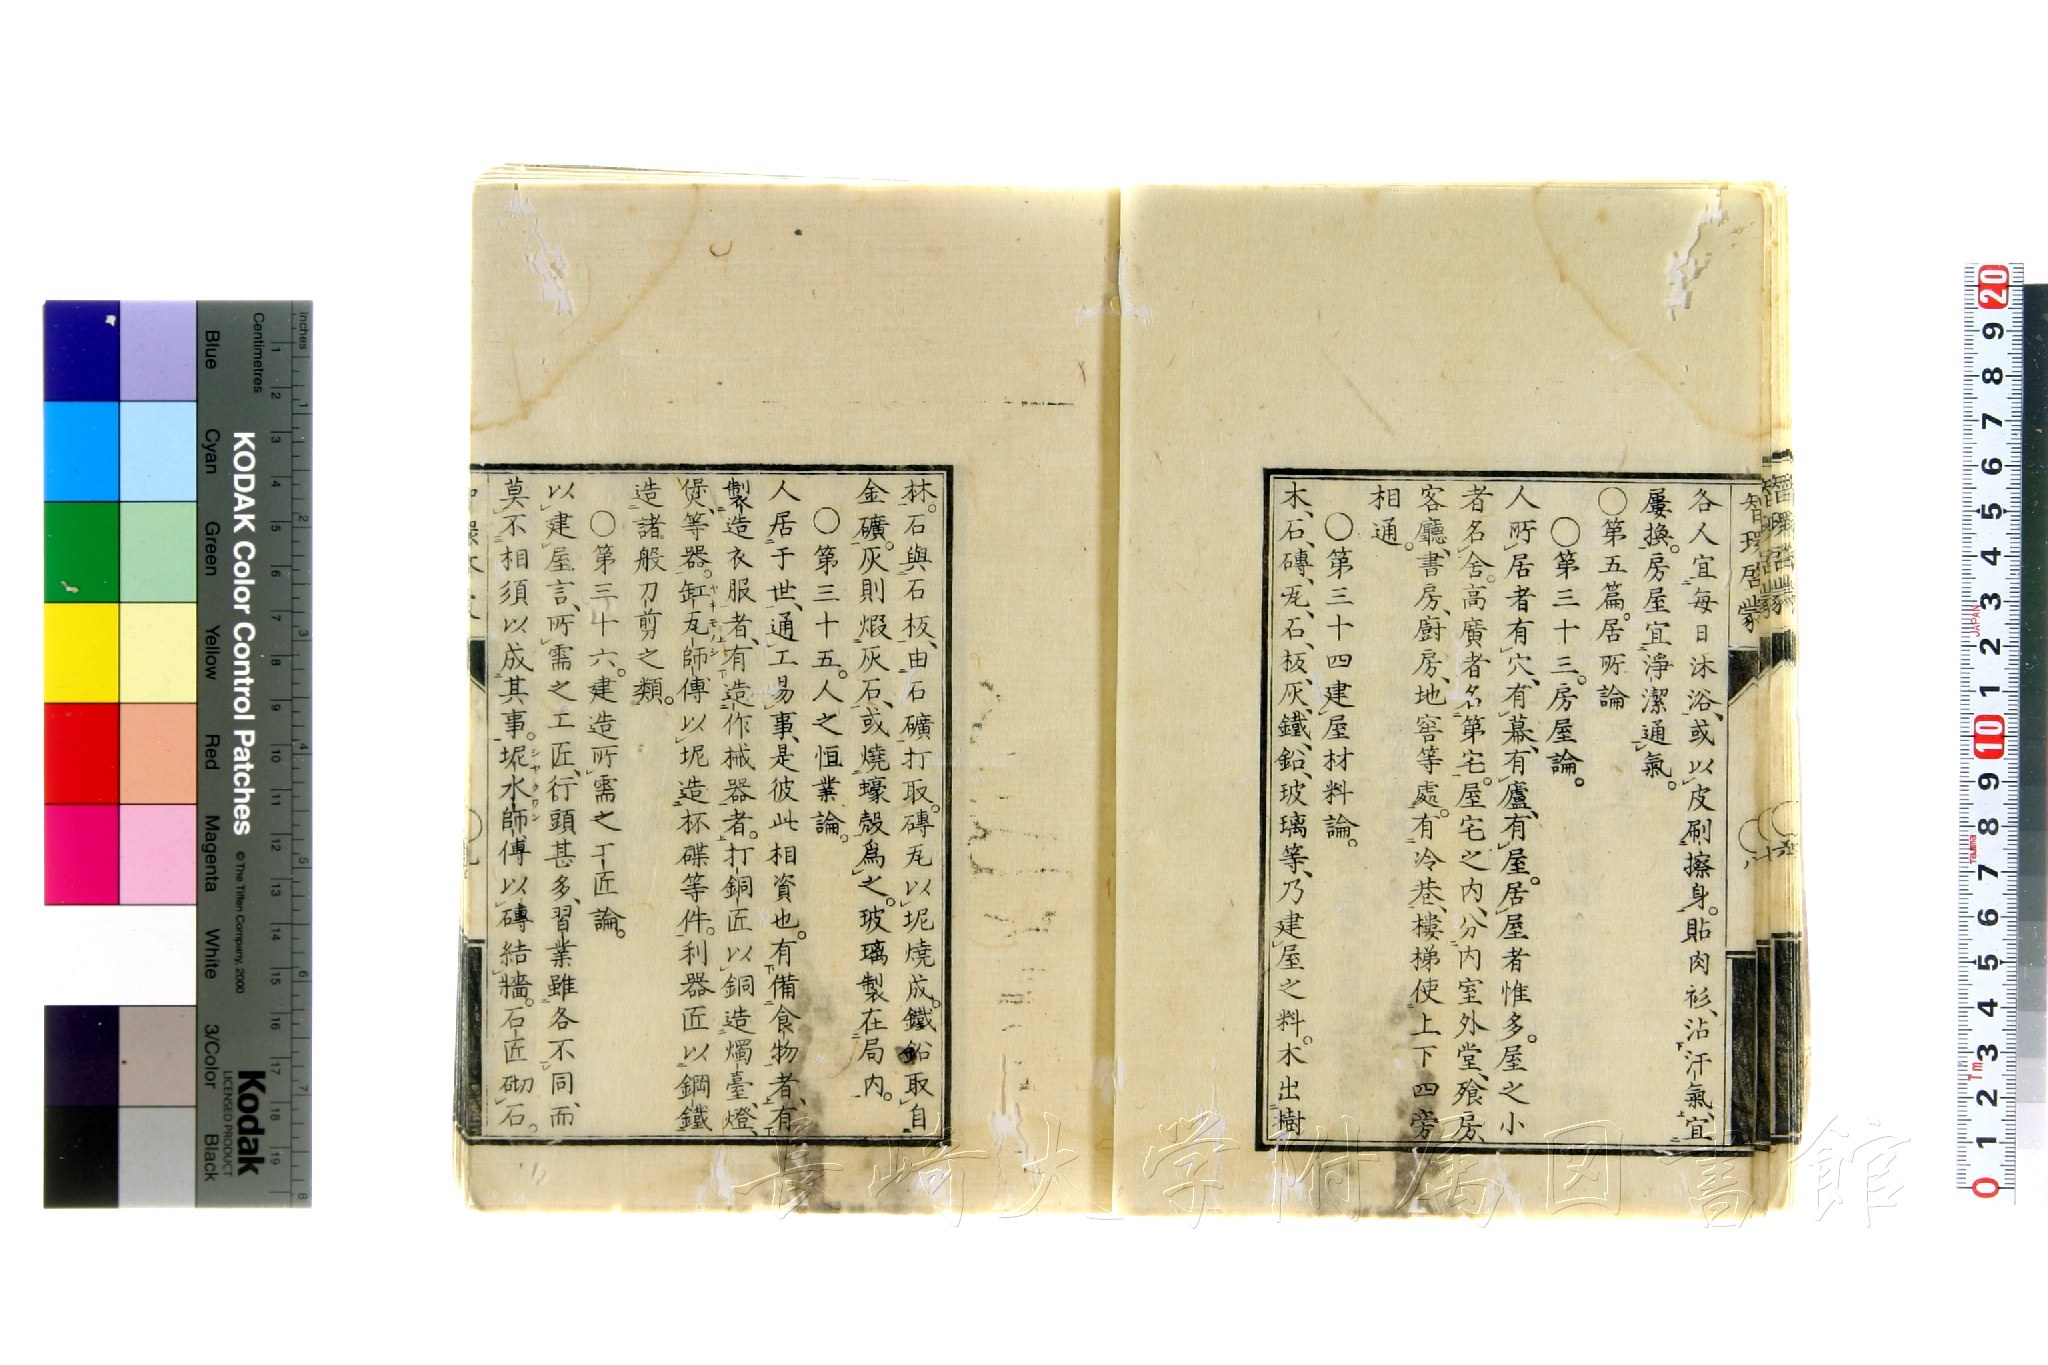 各人宜每日沐浴、或以皮刷擦身。貼肉衫、沾汗氣、宜
屢換。房屋宜淨潔通氣。
〇第五篇。居所論
〇第三十三。房屋論。
人所居者有穴、有幕、有廬、有屋。居屋者惟多。屋之小
者名舍。高廣者名第宅。屋宅之內、分內室外堂、飱房、
客廳、書房、廚房、地窖等處。有冷巷、樓梯使上下四旁
相通。
〇第三十四建屋材料論。
木、石、磚、瓦、石板、灰、鐵、鉛、玻璃等、乃建屋之料。木出樹
林。石與石板、由石礦打取。磚瓦以坭燒成。鐵鉛取自
金礦。灰則煆灰石、或燒蠔殼為之。玻璃製在局內。
〇第三十五。人之恒業論。
人居于世、通工易事、是彼此相資也。有備食物者、有
製造衣服者、有造作械器者。打銅匠以銅造燭臺、燈、
煲、等器。缸瓦師傅以坭造杯碟等件。利器匠以鋼鐵
造諸般刀剪之類。
〇第三十六。建造所需之工匠論。
以建屋言、所需之工匠、行頭甚多、習業雖各不同、而
莫不相須以成其事。坭水師傅以磚結牆。石匠砌石。
智環啓蒙
長崎大学附属図書館
KODAK Color Control Patches
© The Tiffen Company, 2000
Kodak
LICENSED PRODUCT
Inches
Centimetres
Blue
Cyan
Green
Yellow
Red
Magenta
White
3/Color
Black
1 2 3 4 5 6 7 8 9 10 11 12 13 14 15 16 17 18 19
1 2 3 4 5 6 7 8
20 9 8 7 6 5 4 3 2 1 10 9 8 7 6 5 4 3 2 1 0
JAPAN
Tajima
1m